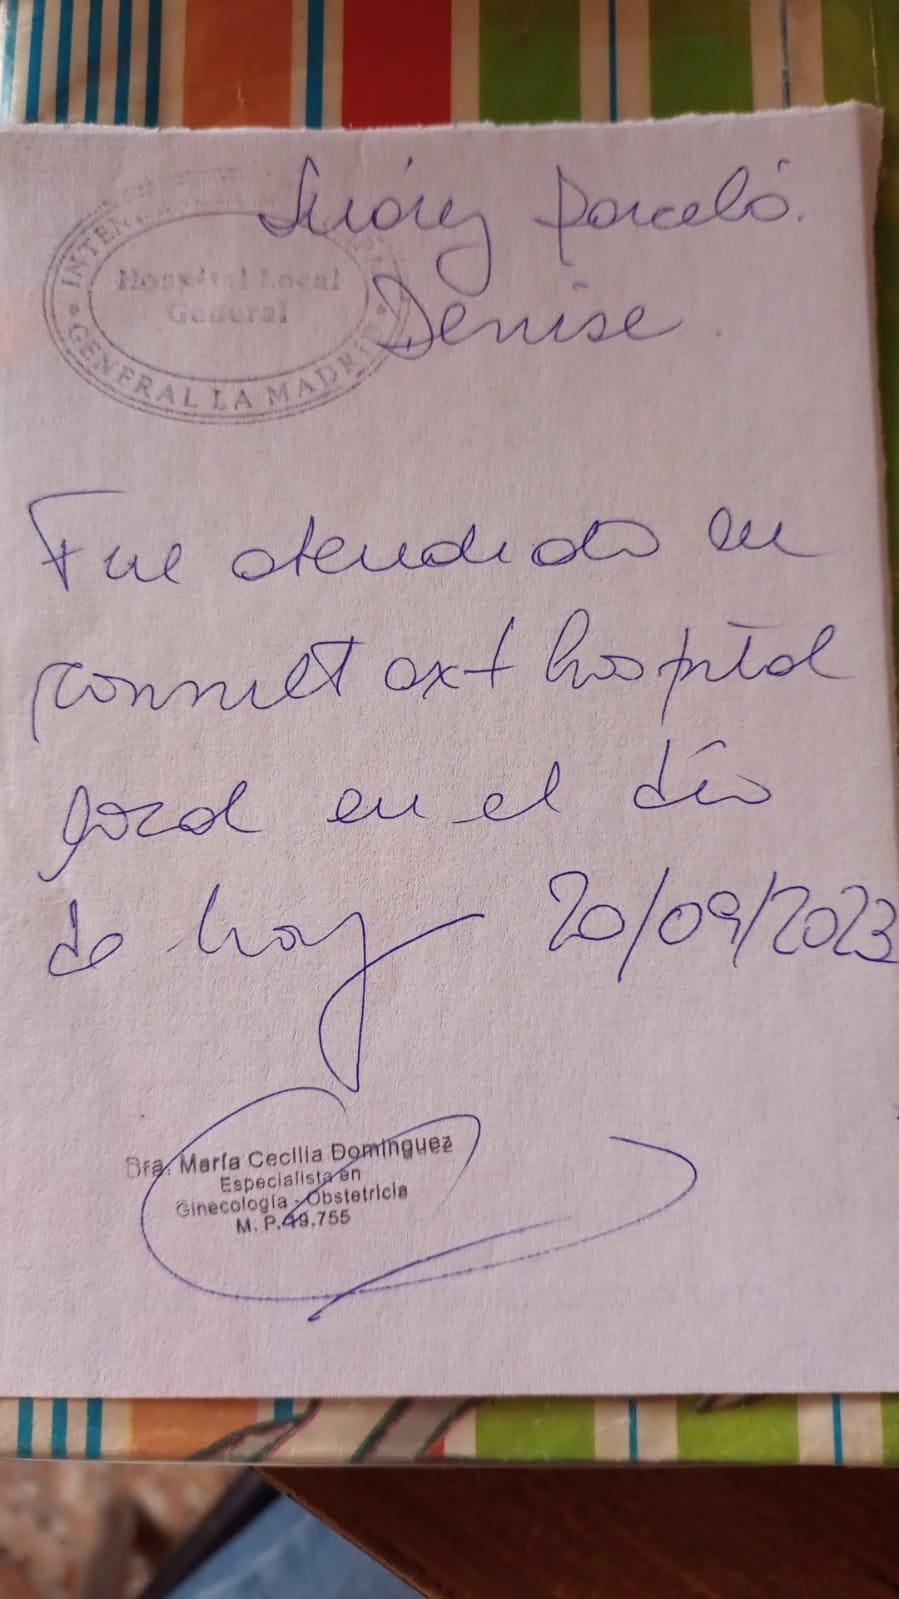 Suárez Barceló.
Denise.
INTEN
Hospital Local
General
GENERAL LA MADRID
Fue atendida en
consult ext hospital
local en el día
de hoy 20/09/2023
Dra. María Cecilia Dominguez
Especialista en
Ginecología - Obstetricia
M. P. 19.755